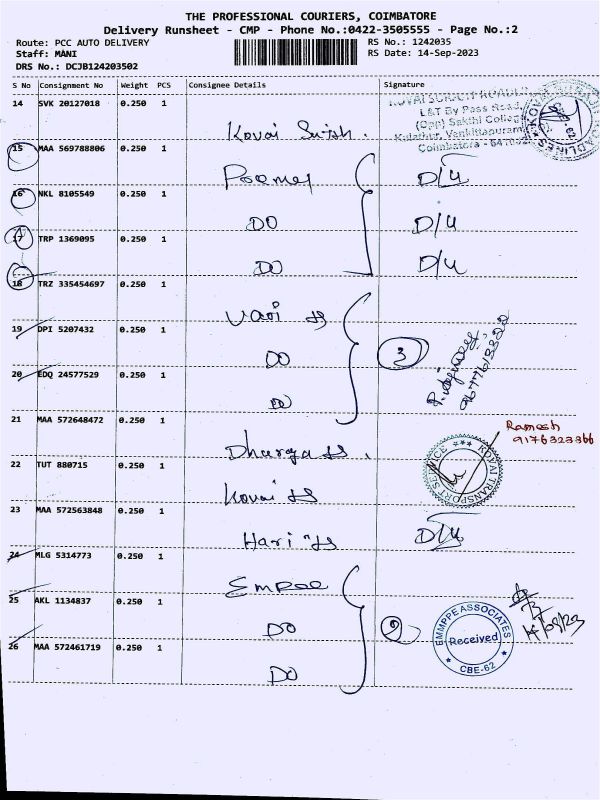 THE PROFESSIONAL COURIERS, COIMBATORE
Delivery Runsheet - CMP - Phone No.:0422-3505555 - Page No.:2
Route: PCC AUTO DELIVERY
RS No.: 1242035
Staff: MANI
RS Date: 14-Sep-2023
DRS No.: DCJB124203502
S No Consignment No Weight PCS Consignee Details Signature
14 SVK 20127018 0.250 1
KOVAI SURASH ROADLINES
L&T By Pass Road,
(Opp) Sakthi College
Kulathur, Venkittapuram
Coimbatore - 641062
Kovai Suresh.
15 MAA 569788806 0.250 1
D/U
16 NKL 8105549 0.250 1
DO D/U
17 TRP 1369095 0.250 1
DO D/U
18 TRZ 335454697 0.250 1
Vari
19 DPI 5207432 0.250 1
DO 3
20 EDQ 24577529 0.250 1
DO
21 MAA 572648472 0.250 1
Ramesh
9176323366
Dharga
KOVAI TRANSPORT SERVICE
22 TUT 880715 0.250 1
Kovai
23 MAA 572563848 0.250 1
Hari D/U
24 MLG 5314773 0.250 1
Empee
25 AKL 1134837 0.250 1
DO 2
EMMPPE ASSOCIATES
Received
CBE-62
14/09/23
26 MAA 572461719 0.250 1
DO